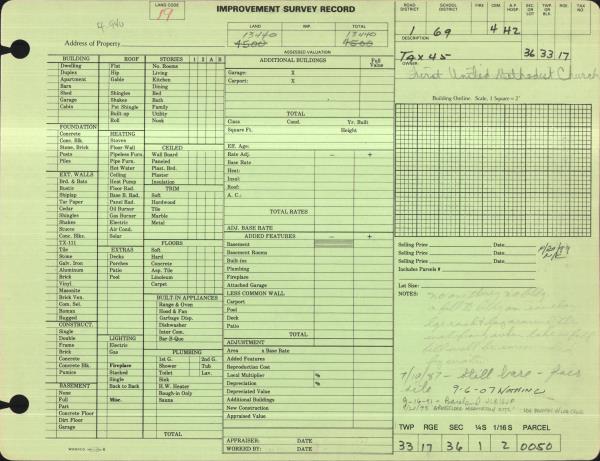 LAND CODE
19
IMPROVEMENT SURVEY RECORD
LAND IMP. TOTAL
13440 13440
4500 4500
ASSESSED VALUATION
Address of Property
ROAD DISTRICT SCHOOL DISTRICT FIRE CEM. A.F. HOSP. SEC OR LOT TWP OR BLK RGE TAX NO
1 69 4 H2
DESCRIPTION
Tax 45 36 33 17
OWNER
First United Methodist Church
Building Outline. Scale, 1 Square = 2'
BUILDING ROOF STORIES 1 2 A B
Dwelling Flat No. Rooms
Duplex Hip Living
Apartment Gable Kitchen
Barn Dining
Shed Shingles Bed
Garage Shakes Bath
Cabin Pat Shingle Family
Built-up Utility
Roll Nook
FOUNDATION
Concrete HEATING
Conc. Blk Stoves
Stone, Brick Floor Wall CEILED
Posts Pipeless Furn. Wall Board
Piles Pipe Furn. Paneled
Hot Water Plast. Brd.
EXT. WALLS Ceiling Plaster
Brd. & Bats Heat Pump Insulation
Rustic Floor Rad. TRIM
Shiplap Base B. Rad. Soft
Tar Paper Panel Rad. Hardwood
Cedar Oil Burner Tile
Shingles Gas Burner Marble
Shakes Electric Metal
Stucco Air Cond.
Conc. Blks. Solar
TX-111 FLOORS
Tile EXTRAS Soft
Stone Decks Hard
Galv. Iron Porches Concrete
Aluminum Patio Asp. Tile
Brick Pool Linoleum
Vinyl Carpet
Masonite
Brick Ven. BUILT-IN APPLIANCES
Com. Sel. Range & Oven
Roman Hood & Fan
Rugged Garbage Disp.
CONSTRUCT. Dishwasher
Single Inter Com.
Double LIGHTING Bar-B-Que
Frame Electric
Brick Gas PLUMBING
Concrete 1st G. 2nd G.
Concrete Blk. Fireplace Shower Tub
Pumice Stacked Toilet Lav.
Single Sink
BASEMENT Back to Back H.W. Heater
None Rough-in Only
Full Misc. Sauna
Part
Concrete Floor
Dirt Floor
Garage
TOTAL
ADDITIONAL BUILDINGS Full Value
Garage: X
Carport: X
TOTAL
Class Cond. Yr. Built
Square Ft. Height
Eff. Age:
Rate Adj. − +
Base Rate
Heat:
Insul:
Roof:
A. C.:
TOTAL RATES
ADJ. BASE RATE
ADDED FEATURES − +
Basement
Basement Rooms
Built-ins
Plumbing
Fireplace
Attached Garage
LESS COMMON WALL
Carport
Pool
Deck
Patio
TOTAL
ADJUSTMENT
Area x Base Rate
Added Features
Reproduction Cost
Local Multiplier %
Depreciation %
Depreciated Value
Additional Buildings
New Construction
Appraised Value
APPRAISER: DATE
WORKED BY: DATE
Selling Price Date:
Selling Price Date:
Selling Price Date:
Includes Parcels #
Lot Size:
NOTES:
7/10/87 - Still bare -
site 9-6-07 NOTHING
TWP RGE SEC ¼S 1/16 S
33 17 36 1 2 0050